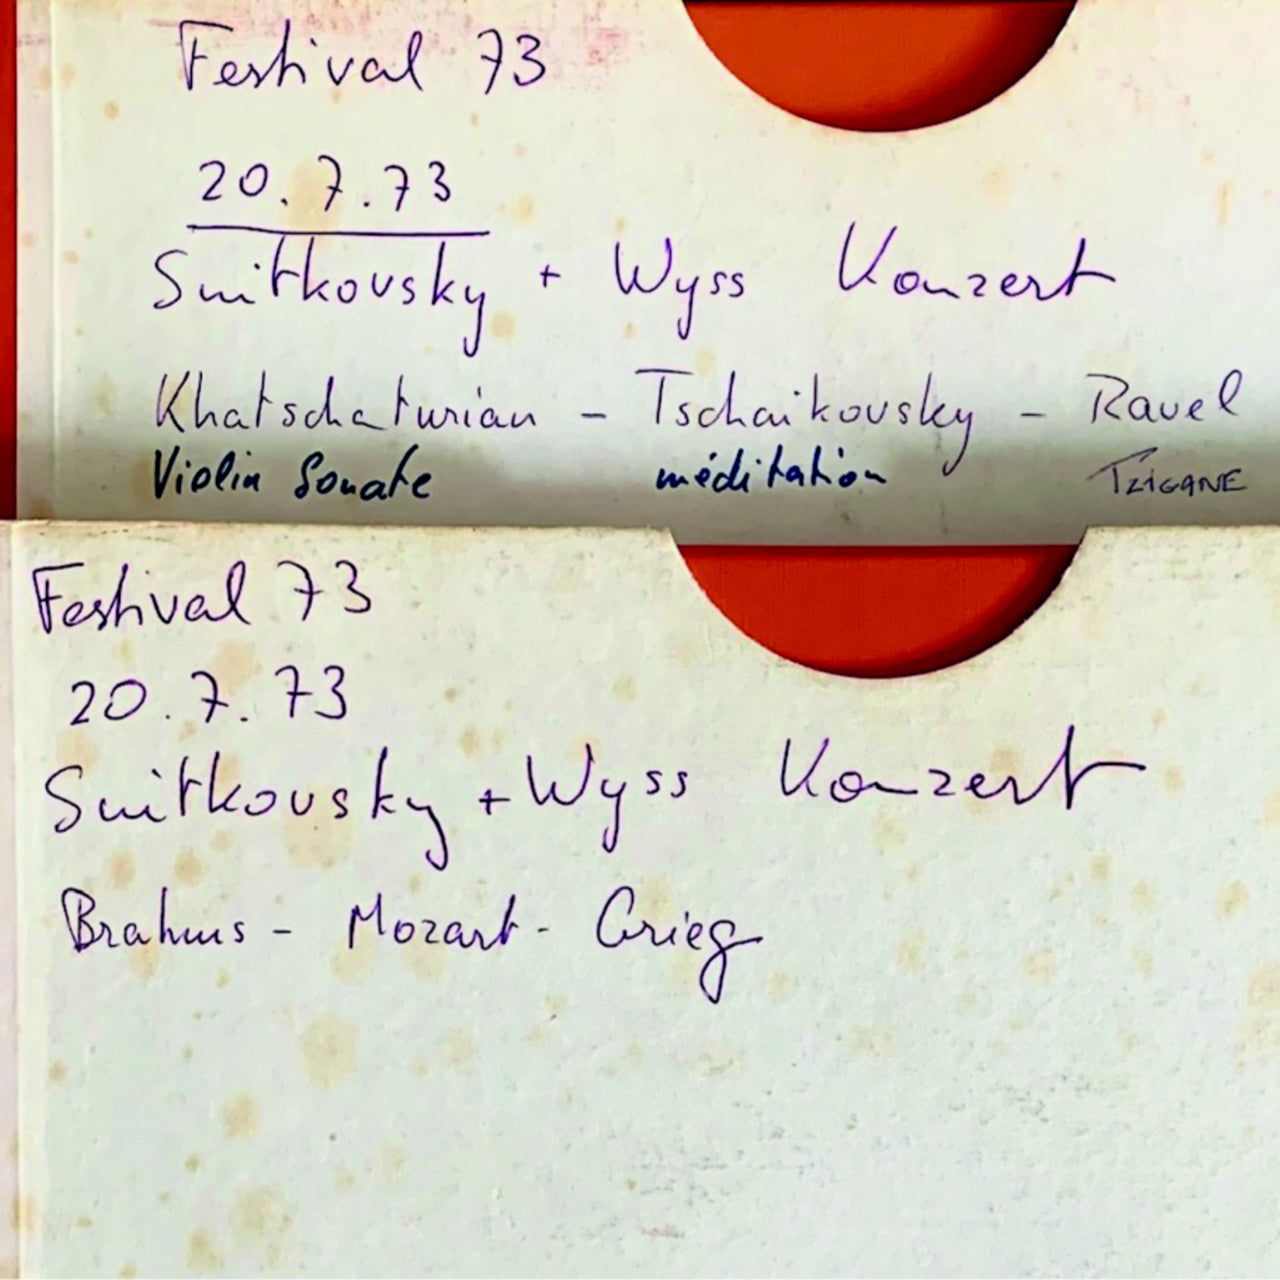 Festival 73
20.7.73
Snitkovsky + Wyss Konzert
Khatschaturian - Tschaikovsky - Ravel
Violin Sonate méditation TZIGANE
Festival 73
20.7.73
Snitkovsky + Wyss Konzert
Brahms - Mozart - Grieg